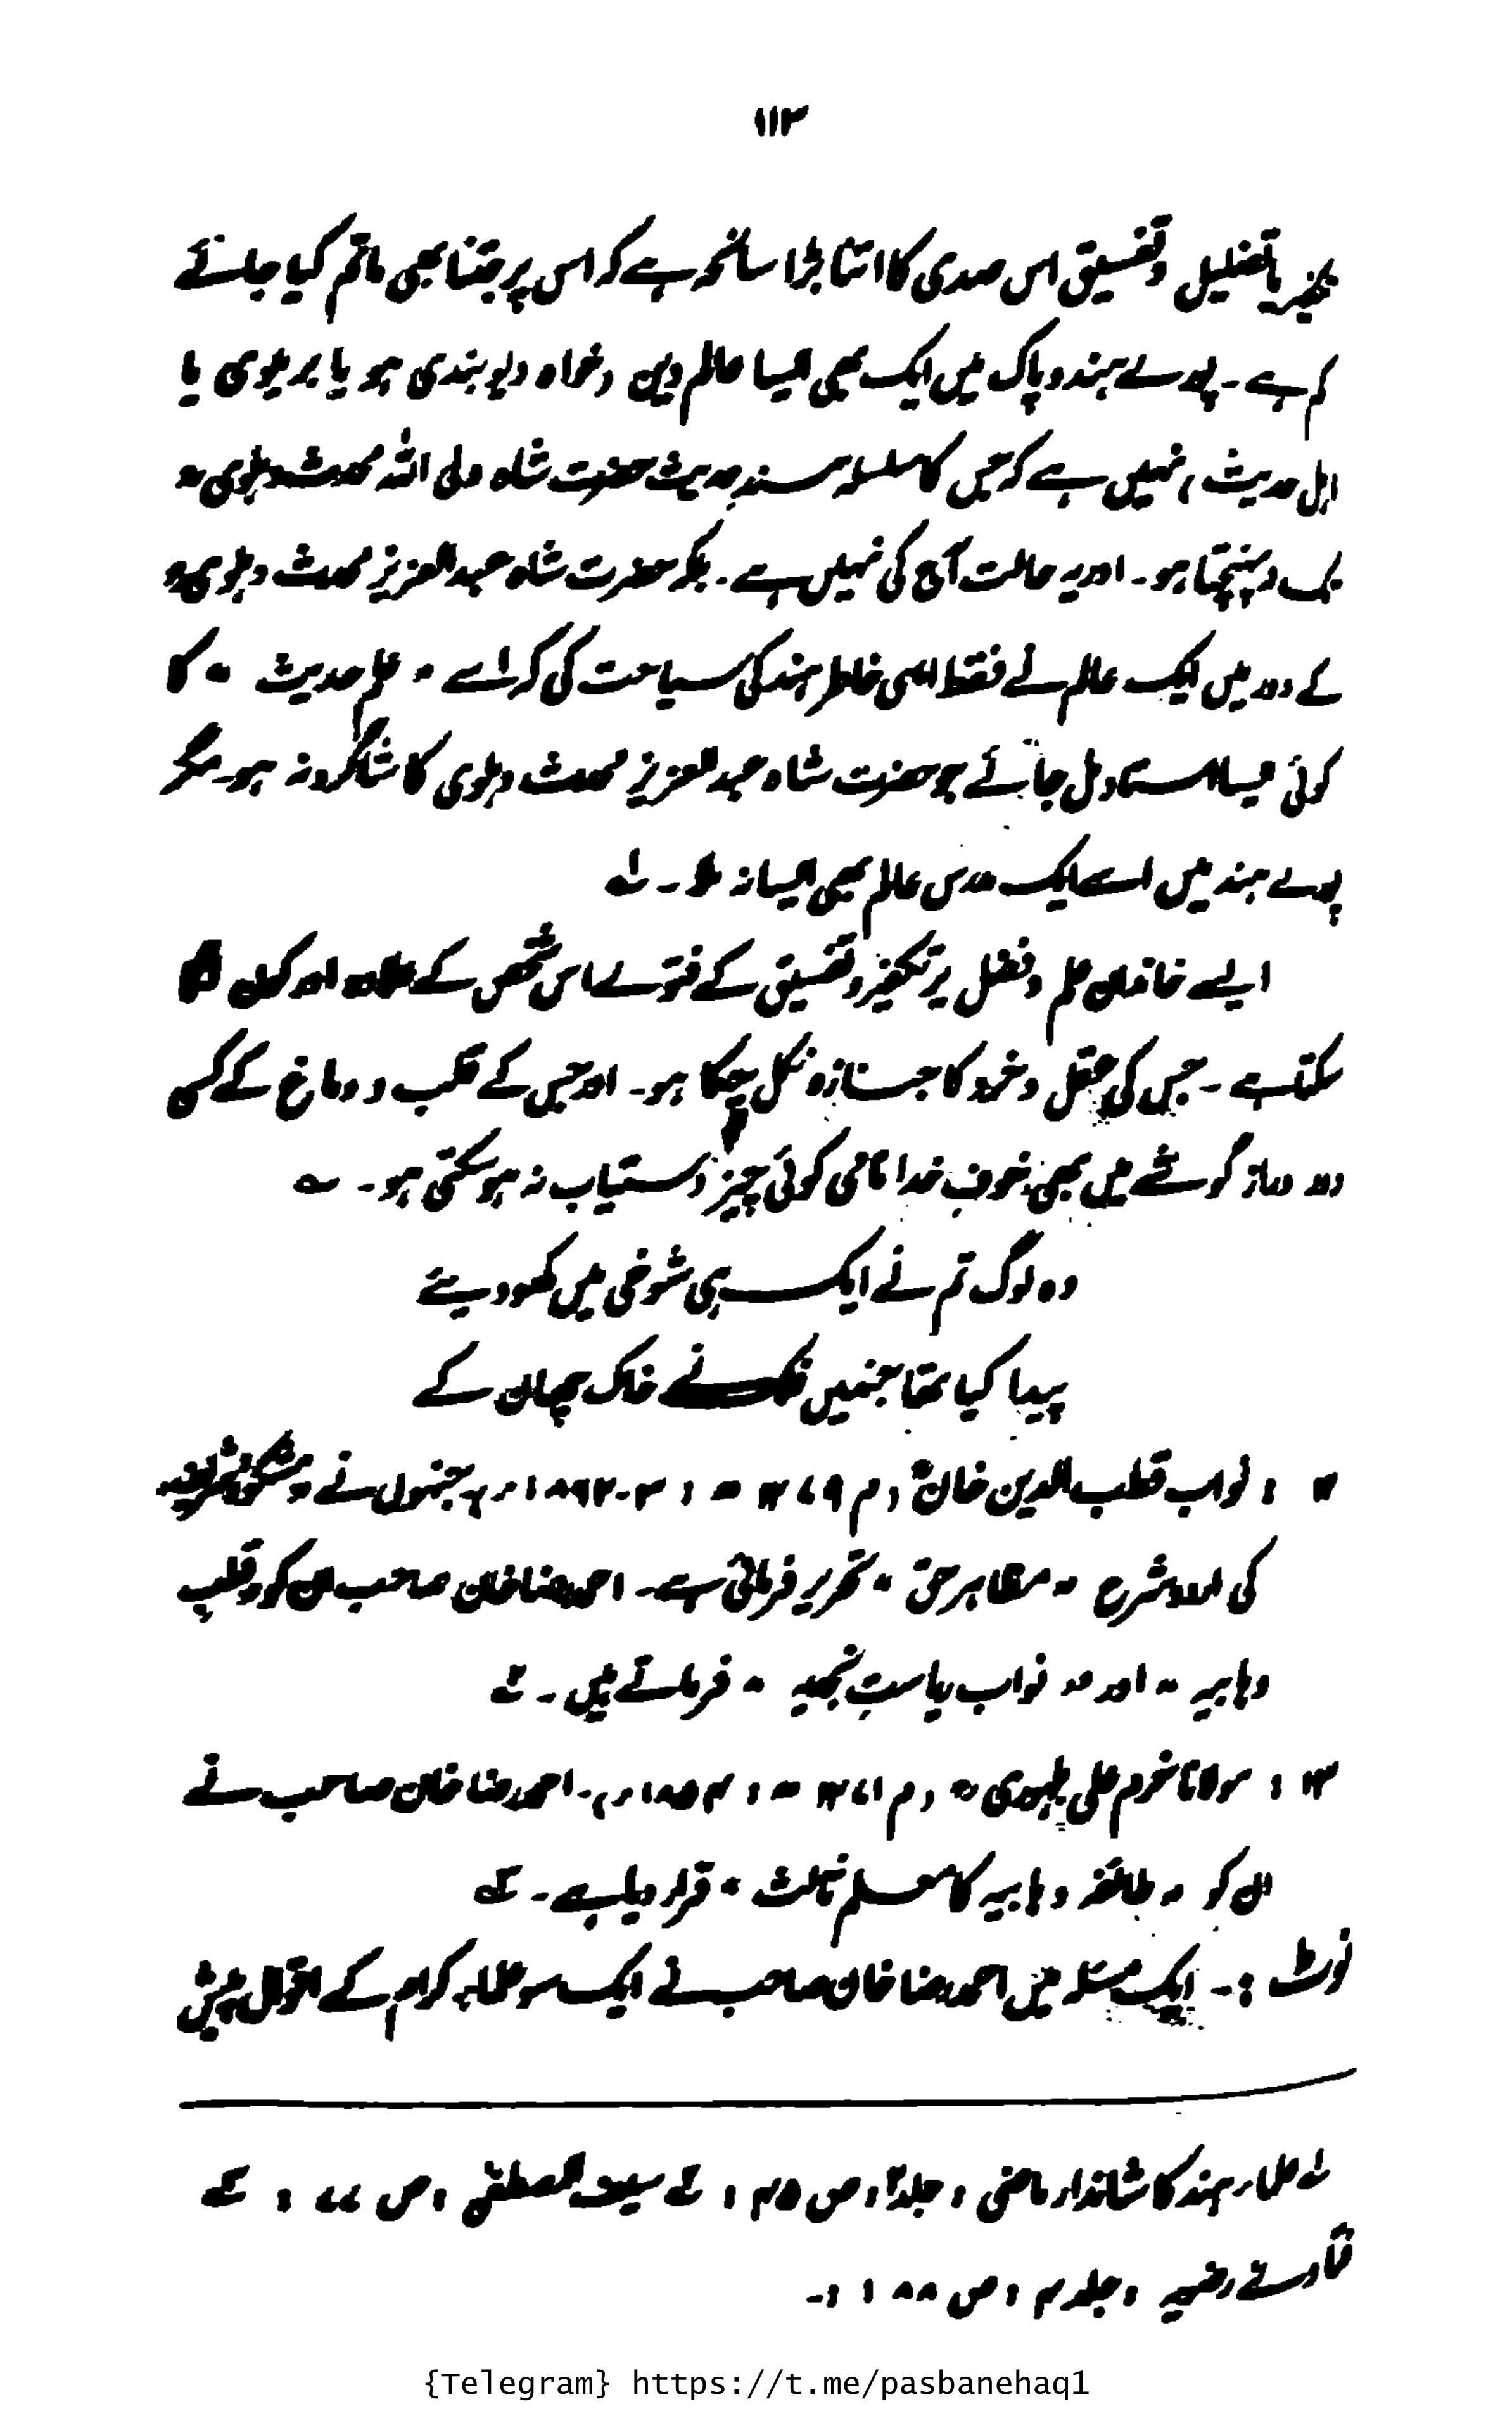 ۱۱۳
تکفیر یا تضلیل و تفسیق اس صدی کا اتنا بڑا سانحہ ہے کہ اس پر جتنا بھی ماتم کیا جائے
کم ہے ۔ پورے ہند و پاک میں ایک بھی ایسا عالم دین (خواہ دیوبندی ہو یا بریلوی یا
اہل حدیث) نہیں ہے کہ جس کا سلسلہ سند حدیث حضرت شاہ ولی اللہ محدث دہلویؒ
تک نہ پہنچتا ہو ۔ اور یہ حالت آج کی نہیں ہے ۔ بلکہ حضرت شاہ عبدالعزیز محدث دہلویؒ
کے دور میں ایک عالم نے فقط اسی خاطر ہند کی سیاحت کی کہ اسے " علم حدیث " کا
کوئی ایسا استاد مل جائے جو حضرت شاہ عبدالعزیز محدث دہلوی کا شاگرد نہ ہو ۔ مگر
پورے ہند میں اسے ایک مدرس عالم بھی ایسا نہ ملا ۔ لہ
ایسے خاندان علم و فضل پر تکفیر و تفسیق کے فتوے اس شخص کے علاوہ اور کون
سکتا ہے ۔ جس کی عقل و خرد کا جنازہ نکل چکا ہو ۔ اور جس کے قلب و دماغ کے کسی
دور دراز گوشے میں بھی خوف خدا نامی کوئی چیز دستیاب نہ ہو سکتی ہو ۔ ؎
وہ لوگ تم نے ایک ہی شوخی میں کھو دیئے
پیدا کیا تھا جنہیں فلک نے خاک چھان کے
۱۲ : نواب قطب الدین خانؒ (م ۱۲۷۹ھ : ۳-۱۸۶۲ء) جنہوں نے مشکوٰۃ شریف
کی اردو شرح " مظاہر حق " تحریر فرمائی ہے ۔ احمد رضا خان صاحب ان کو " قلب
وہابیہ " اور " نواب ریاست نجدیہ " فرماتے ہیں ۔ ٢ھ
۱۳ : مولانا خرم علی بلہوریؒ (م ۱۲۷۱ھ : ۱۸۵۴ء) ۔ احمد رضا خان صاحب نے
ان کو " طائفہ وہابیہ کا معلم ثالث " قرار دیا ہے ۔ ٣ھ
نوٹ :۔ ایک مسئلہ میں احمد رضا خان صاحب نے ایک سو علماء کرام کے اقوال پیش
لہ علماء ہند کا شاندار ماضی ، جلد ۲ ، ص ۴۵ ، ٢ھ سیف المصطفیٰ ، ص ۷۷ ، ٣ھ
فتاوٰے رضویہ ، جلد ۴ ، ص ۱۸۸ :۔
{Telegram} https://t.me/pasbanehaq1